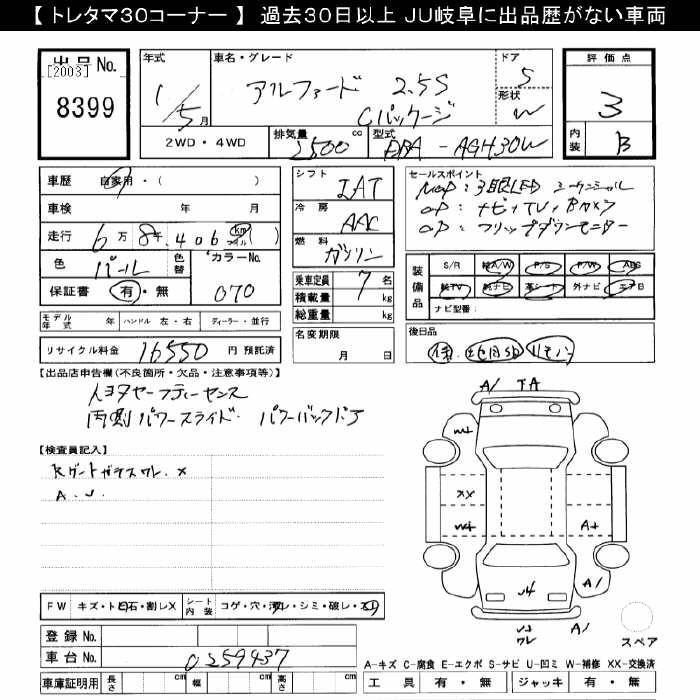 【 トレタマ30コーナー 】 過去30日以上 JU岐阜に出品歴がない車両
出品 No.
[2003]
8399
年式
1/5月
車名・グレード
アルファード 2.5S
Cパッケージ
ドア
5
形状
W
評価点
3
内装
B
2WD・4WD
排気量 2500 cc
型式 DBA - AGH30W
車歴 自家用・( )
車検 年 月
走行 6万 8千.406 km マイル ( )
色 パール 色替 カラーNo. 070
保証書 有・無
シフト IAT
冷房 AAC
燃料 ガソリン
乗車定員 7 名
積載量 kg
総重量 kg
セールスポイント
MOP:3眼LED シーケンシャル
OP:ナビ,TV,Bカメラ
OP:フリップダウンモニター
装備品
S/R 純A/W P/S P/W ABS
純TV 純ナビ 革シート 外ナビ エアB
ナビ型番:
モデル年式 年 ハンドル 左・右 ディーラー・並行
リサイクル料金 16550 円 預託済
名変期限
月 日
後日品
保.
リモコン
【出品店申告欄(不良箇所・欠品・注意事項等)】
トヨタセーフティーセンス
両側パワースライド. パワーバックドア
【検査員記入】
Rゲートガラスワレ.X
A.U.
FW キズ・ト石・割レX シート内装 コゲ・穴・汚レ・シミ・破レ・スレ
登録 No.
車台 No. 0259437
車庫証明用 長さ cm 幅 cm 高さ cm
A/ TA
XX
A+
A/
U4
ワレ
A/
スペア
A-キズ C-腐食 E-エクボ S-サビ U-凹ミ W-補修 XX-交換済
工具 有・無 ジャッキ 有・無